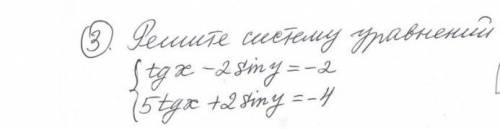 ③. Решите систему уравнений
{tgx - 2siny = -2
{5tgx + 2siny = -4